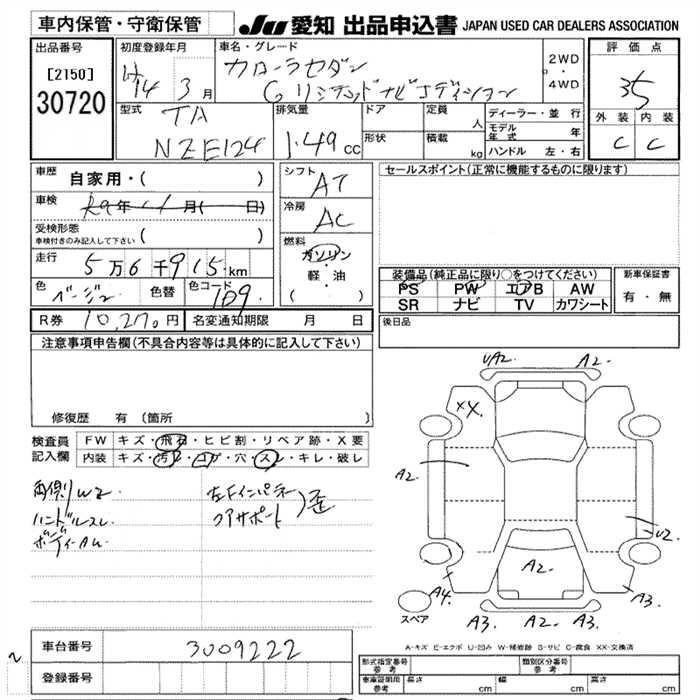 車内保管・守衛保管
JU 愛知 出品申込書 JAPAN USED CAR DEALERS ASSOCIATION
出品番号
[2150]
30720
初度登録年月
H14 3月
車名・グレード
カローラセダン
G リミテッドナビエディション
2WD
・
4WD
評価点
35
外装 内装
C C
型式
TA
NZE124
排気量
1.49cc
ドア
形状
定員
人
積載
kg
ディーラー・並行
モデル年式 年
ハンドル 左・右
車歴 自家用・( )
車検 R9年11月( 日)
受検形態
車検付きのみ記入して下さい ( )
走行 5万6千915km
色 ベージュ 色替 色コード 1D9
R券 10,270円 名変通知期限 月 日
シフト
AT
冷房
AC
燃料
ガソリン
・
軽・油
( )
セールスポイント(正常に機能するものに限ります)
装備品(純正品に限り○をつけてください)
PS PW エアB AW
SR ナビ TV カワシート
新車保証書
有・無
後日品
注意事項申告欄(不具合内容等は具体的に記入して下さい)
修復歴 有 〔箇所 〕
検査員
記入欄
FW キズ・飛石・ヒビ割・リペア跡・X要
内装 キズ・汚レ・コゲ・穴・スレ・キレ・破レ
両側リW2
ハンドルスレ
ボディーAU
左Fインパネ
コアサポート
歪
UA2. A2.
XX.
A2.
U2.
A2.
A4.
A3.
A3. A2. A3.
スペア
A-キズ E-エクボ U-凹み W-補修跡 S-サビ C-腐食 XX-交換済
車台番号 3009222
登録番号
形式指定番号
参考
類別区分番号
参考
車庫証明用
参考
長さ cm 幅 cm 高さ cm